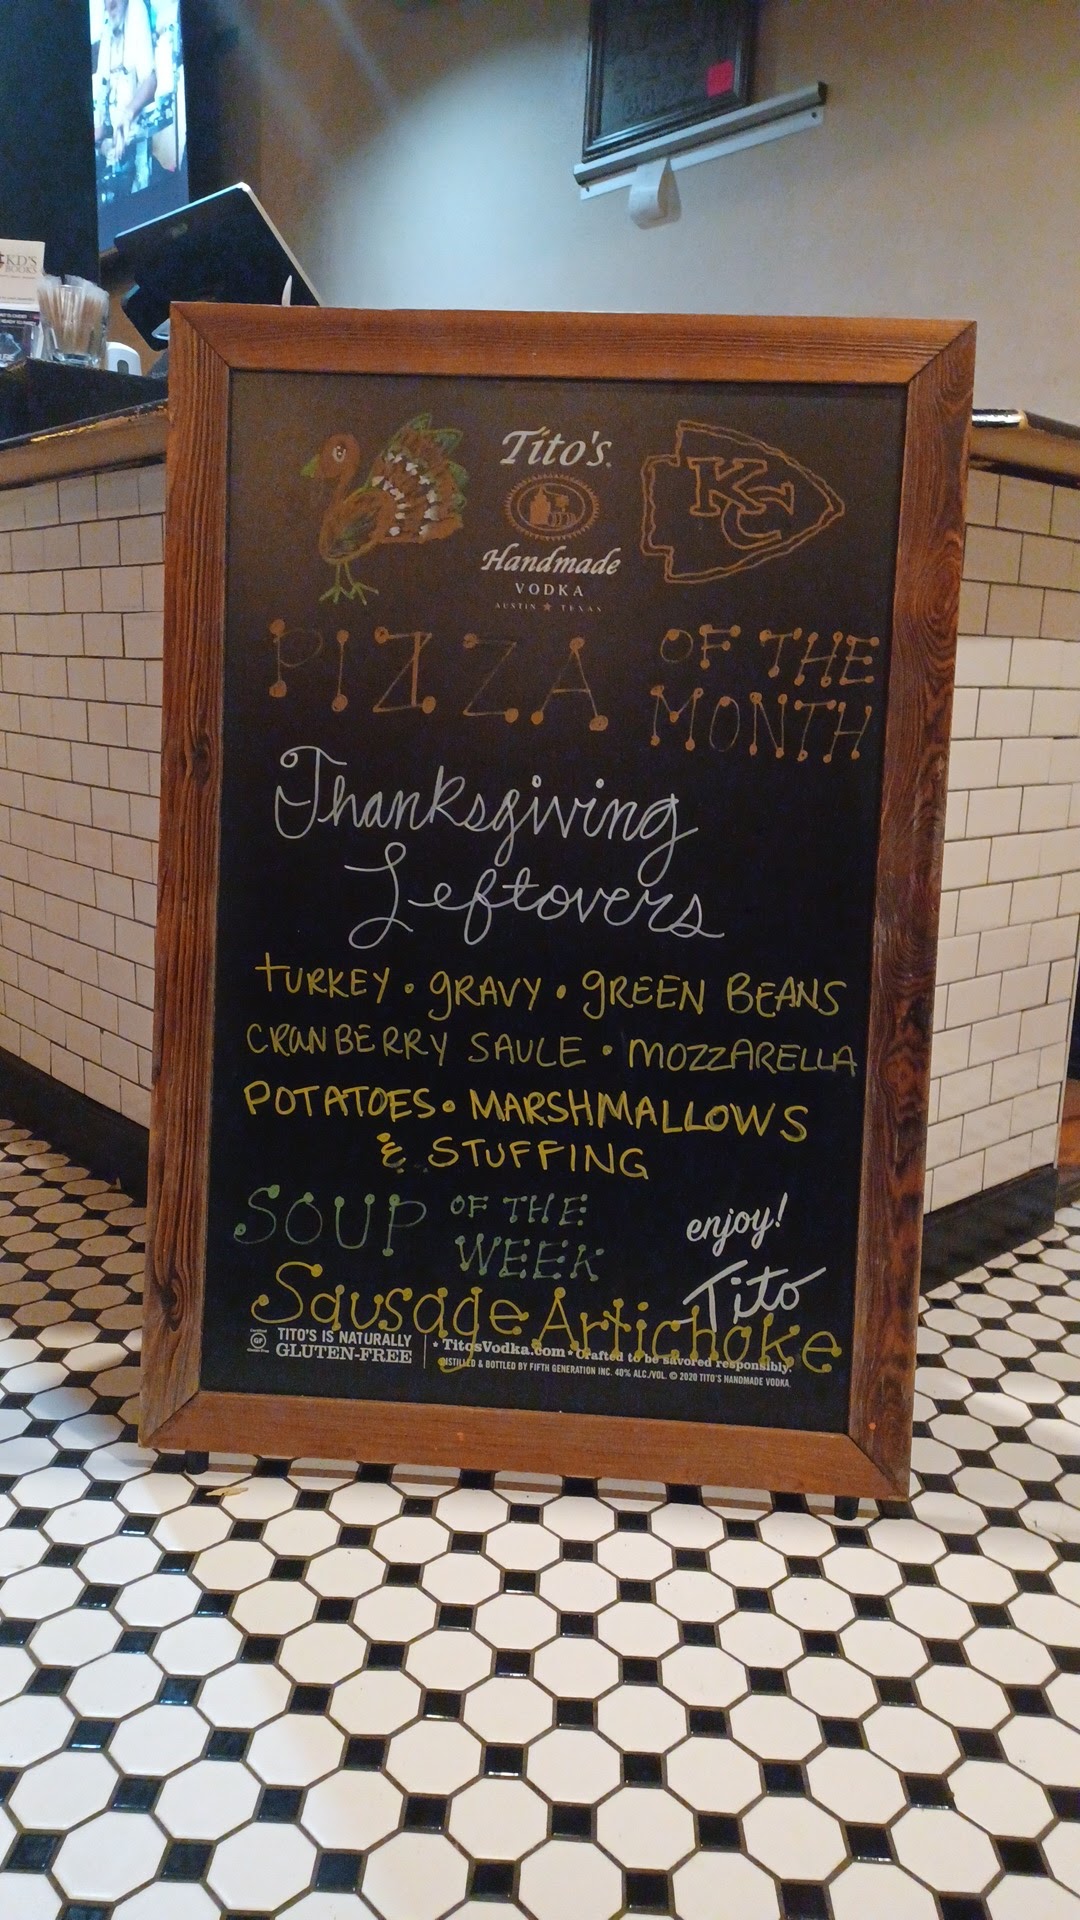 KD'S
BOOKS
Tito's
Handmade
VODKA
AUSTIN ★ TEXAS
KC
PIZZA OF THE
MONTH
Thanksgiving
Leftovers
TURKEY • GRAVY • GREEN BEANS
CRANBERRY SAULE • MOZZARELLA
POTATOES • MARSHMALLOWS
& STUFFING
SOUP OF THE
WEEK
enjoy!
Tito
Sausage Artichoke
GF
TITO'S IS NATURALLY
GLUTEN-FREE
* TitosVodka.com • Crafted to be savored responsibly.
DISTILLED & BOTTLED BY FIFTH GENERATION INC. 40% ALC./VOL. © 2020 TITO'S HANDMADE VODKA.